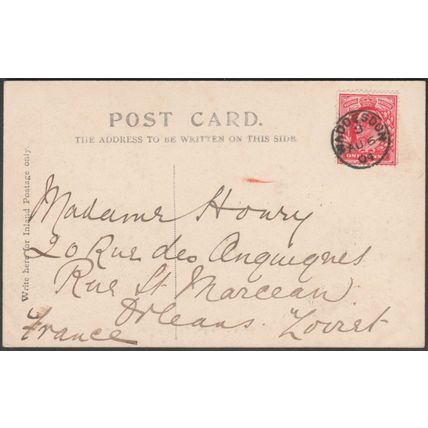 POST CARD.
THE ADDRESS TO BE WRITTEN ON THIS SIDE.
Write here for Inland Postage only.
WADDESDON
AU 6
ONE
Madame Houry
20 Rue des Anguignes
Rue St Marceau
Orleans. Loiret
France